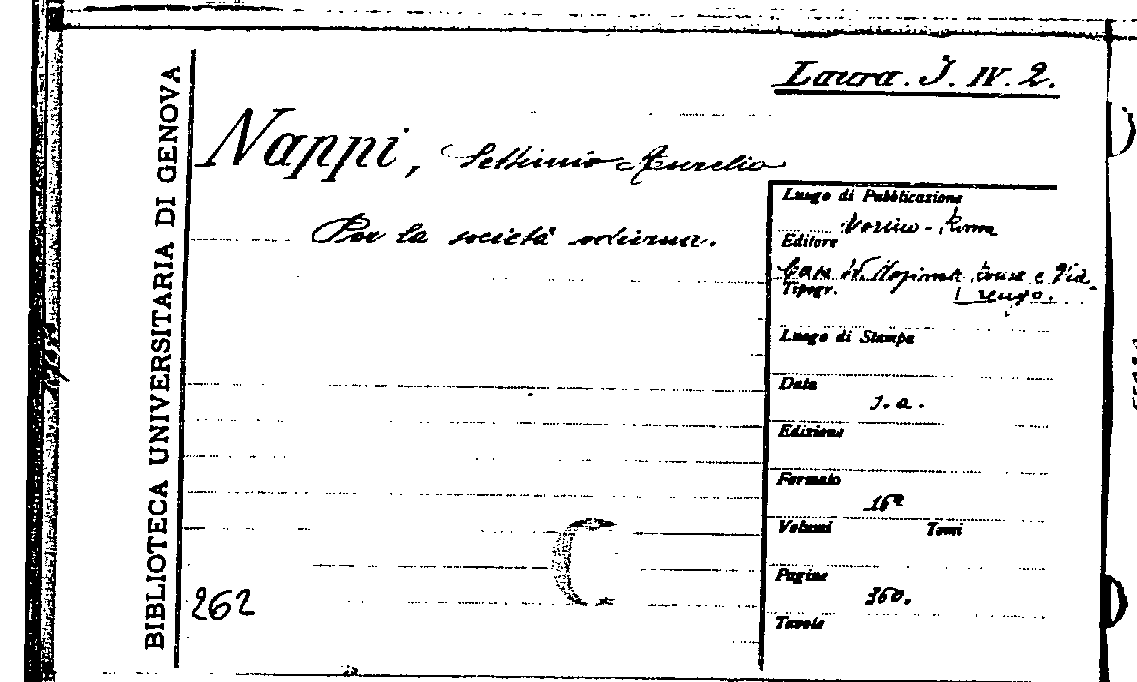 Laura. I. IV. 2.
BIBLIOTECA UNIVERSITARIA DI GENOVA
Nappi, Settimio Aurelio
Per la società odierna.
Luogo di Pubblicazione
Torino - Roma
Editore
Casa Ed. Nazionale
Tipogr.
Luogo di Stampa
Data
s. a.
Edizione
Formato
16º
Volumi Tomi
Pagine
360.
Tavole
262